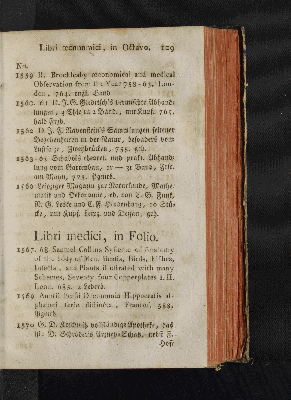 Libri œconomici, in Octavo. 109
No.
1559 R. Brocklesby œconomical and medical
Observation from the Year 758-63. Lon-
don, 764. engl. Band
1560. 61 D. J. G. Gleditsch's vermischte Abhand-
lungen, 2 Thle in 2 Bänd., mit Kupf. 765.
halb Frzb.
1562 D. J. F. Sammlungen seltener
Begebenheiten in der Natur, besonders vom
Zweybrücken, 755.
1563-65 Schabols theoret. und prakt. Abhand-
lung vom Gartenbau, 3 Bänd,
am Mayn, 775. Ppbnd.
1566 Leipziger Magazin zur Naturkunde, Mathe-
matik und Oekonomie, ed. von C. B. Funk,
N. G. Leske und C. F. Hindenburg, Stü-
cke, mit Kupf. Leipz. und Dessau,
Libri medici, in Folio.
1567. 68 Samuel Collins Systeme of Anatomy
of the body of Man, Beasts, Birds, Fishes,
Insects, and Plants illustrated with many
Schemes, Seventy four Copperplates I. II.
Lond. 685. 2 Lederb.
1569 Anutii Foesii Oeconomia Hippocratis al-
phabeti serie distincta, Francof. 588.
1570 G. D. Koschwitz vollständige Apotheke, das
ist: D. Schröders Arzney-Schatz, nebst F.
Hof=